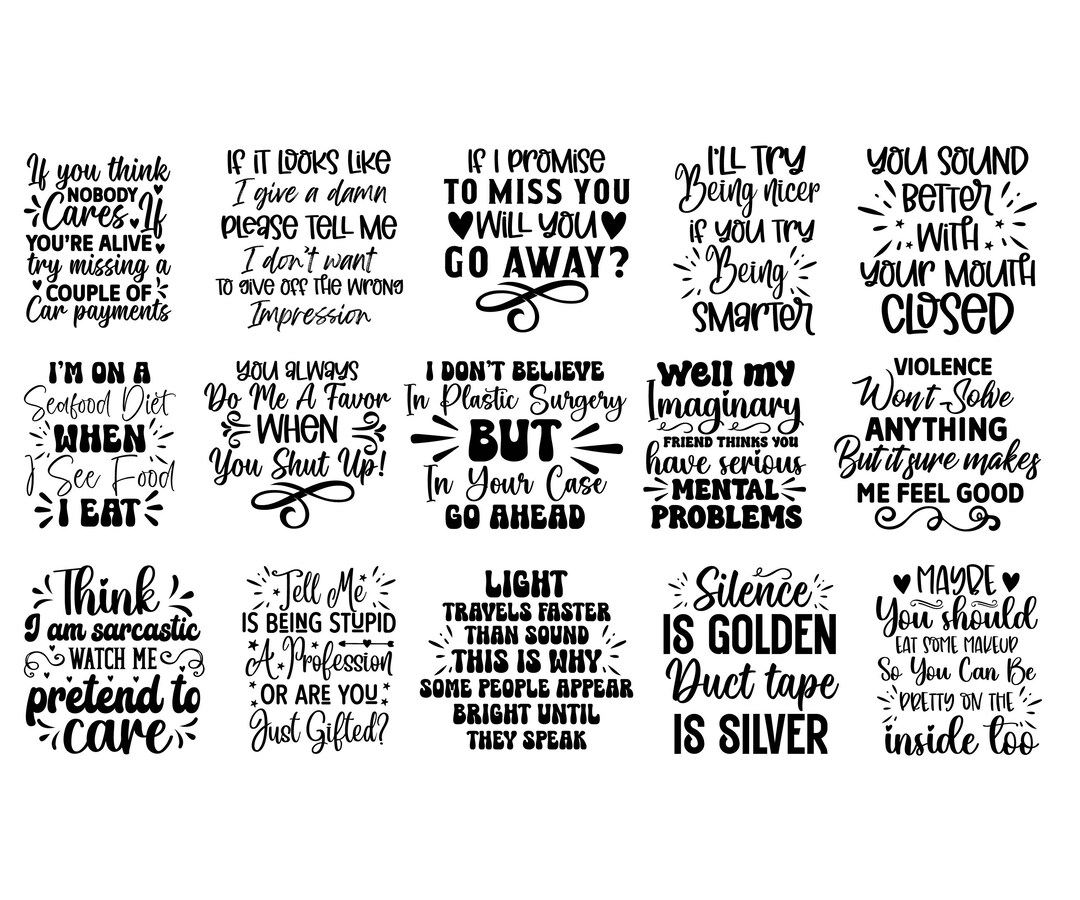 If you think
NOBODY
Cares. If
YOU'RE ALIVE
try missing a
COUPLE OF
Car payments
IF IT LOOKS LIKE
I give a damn
PLEASE TELL ME
I don't want
TO GIVE OFF THE WRONG
Impression
IF I PROMISE
TO MISS YOU
WILL YOU
GO AWAY?
I'LL TRY
Being nicer
IF YOU TRY
Being
SMARTER
YOU SOUND
BETTER
WITH
YOUR MOUTH
CLOSED
I'M ON A
Seafood Diet
WHEN
I See Food
I EAT
YOU ALWAYS
Do Me A Favor
WHEN
You Shut Up!
I DON'T BELIEVE
In Plastic Surgery
BUT
In Your Case
GO AHEAD
Well my
Imaginary
FRIEND THINKS YOU
have serious
MENTAL
PROBLEMS
VIOLENCE
Won't Solve
ANYTHING
But it sure makes
ME FEEL GOOD
Think
I am sarcastic
WATCH ME
pretend to
care
Tell Me
IS BEING STUPID
A Profession
OR ARE YOU
Just Gifted?
LIGHT
TRAVELS FASTER
THAN SOUND
THIS IS WHY
SOME PEOPLE APPEAR
BRIGHT UNTIL
THEY SPEAK
Silence
IS GOLDEN
Duct tape
IS SILVER
MAYBE
You should
EAT SOME MAKEUP
So You Can Be
PRETTY ON THE
inside too